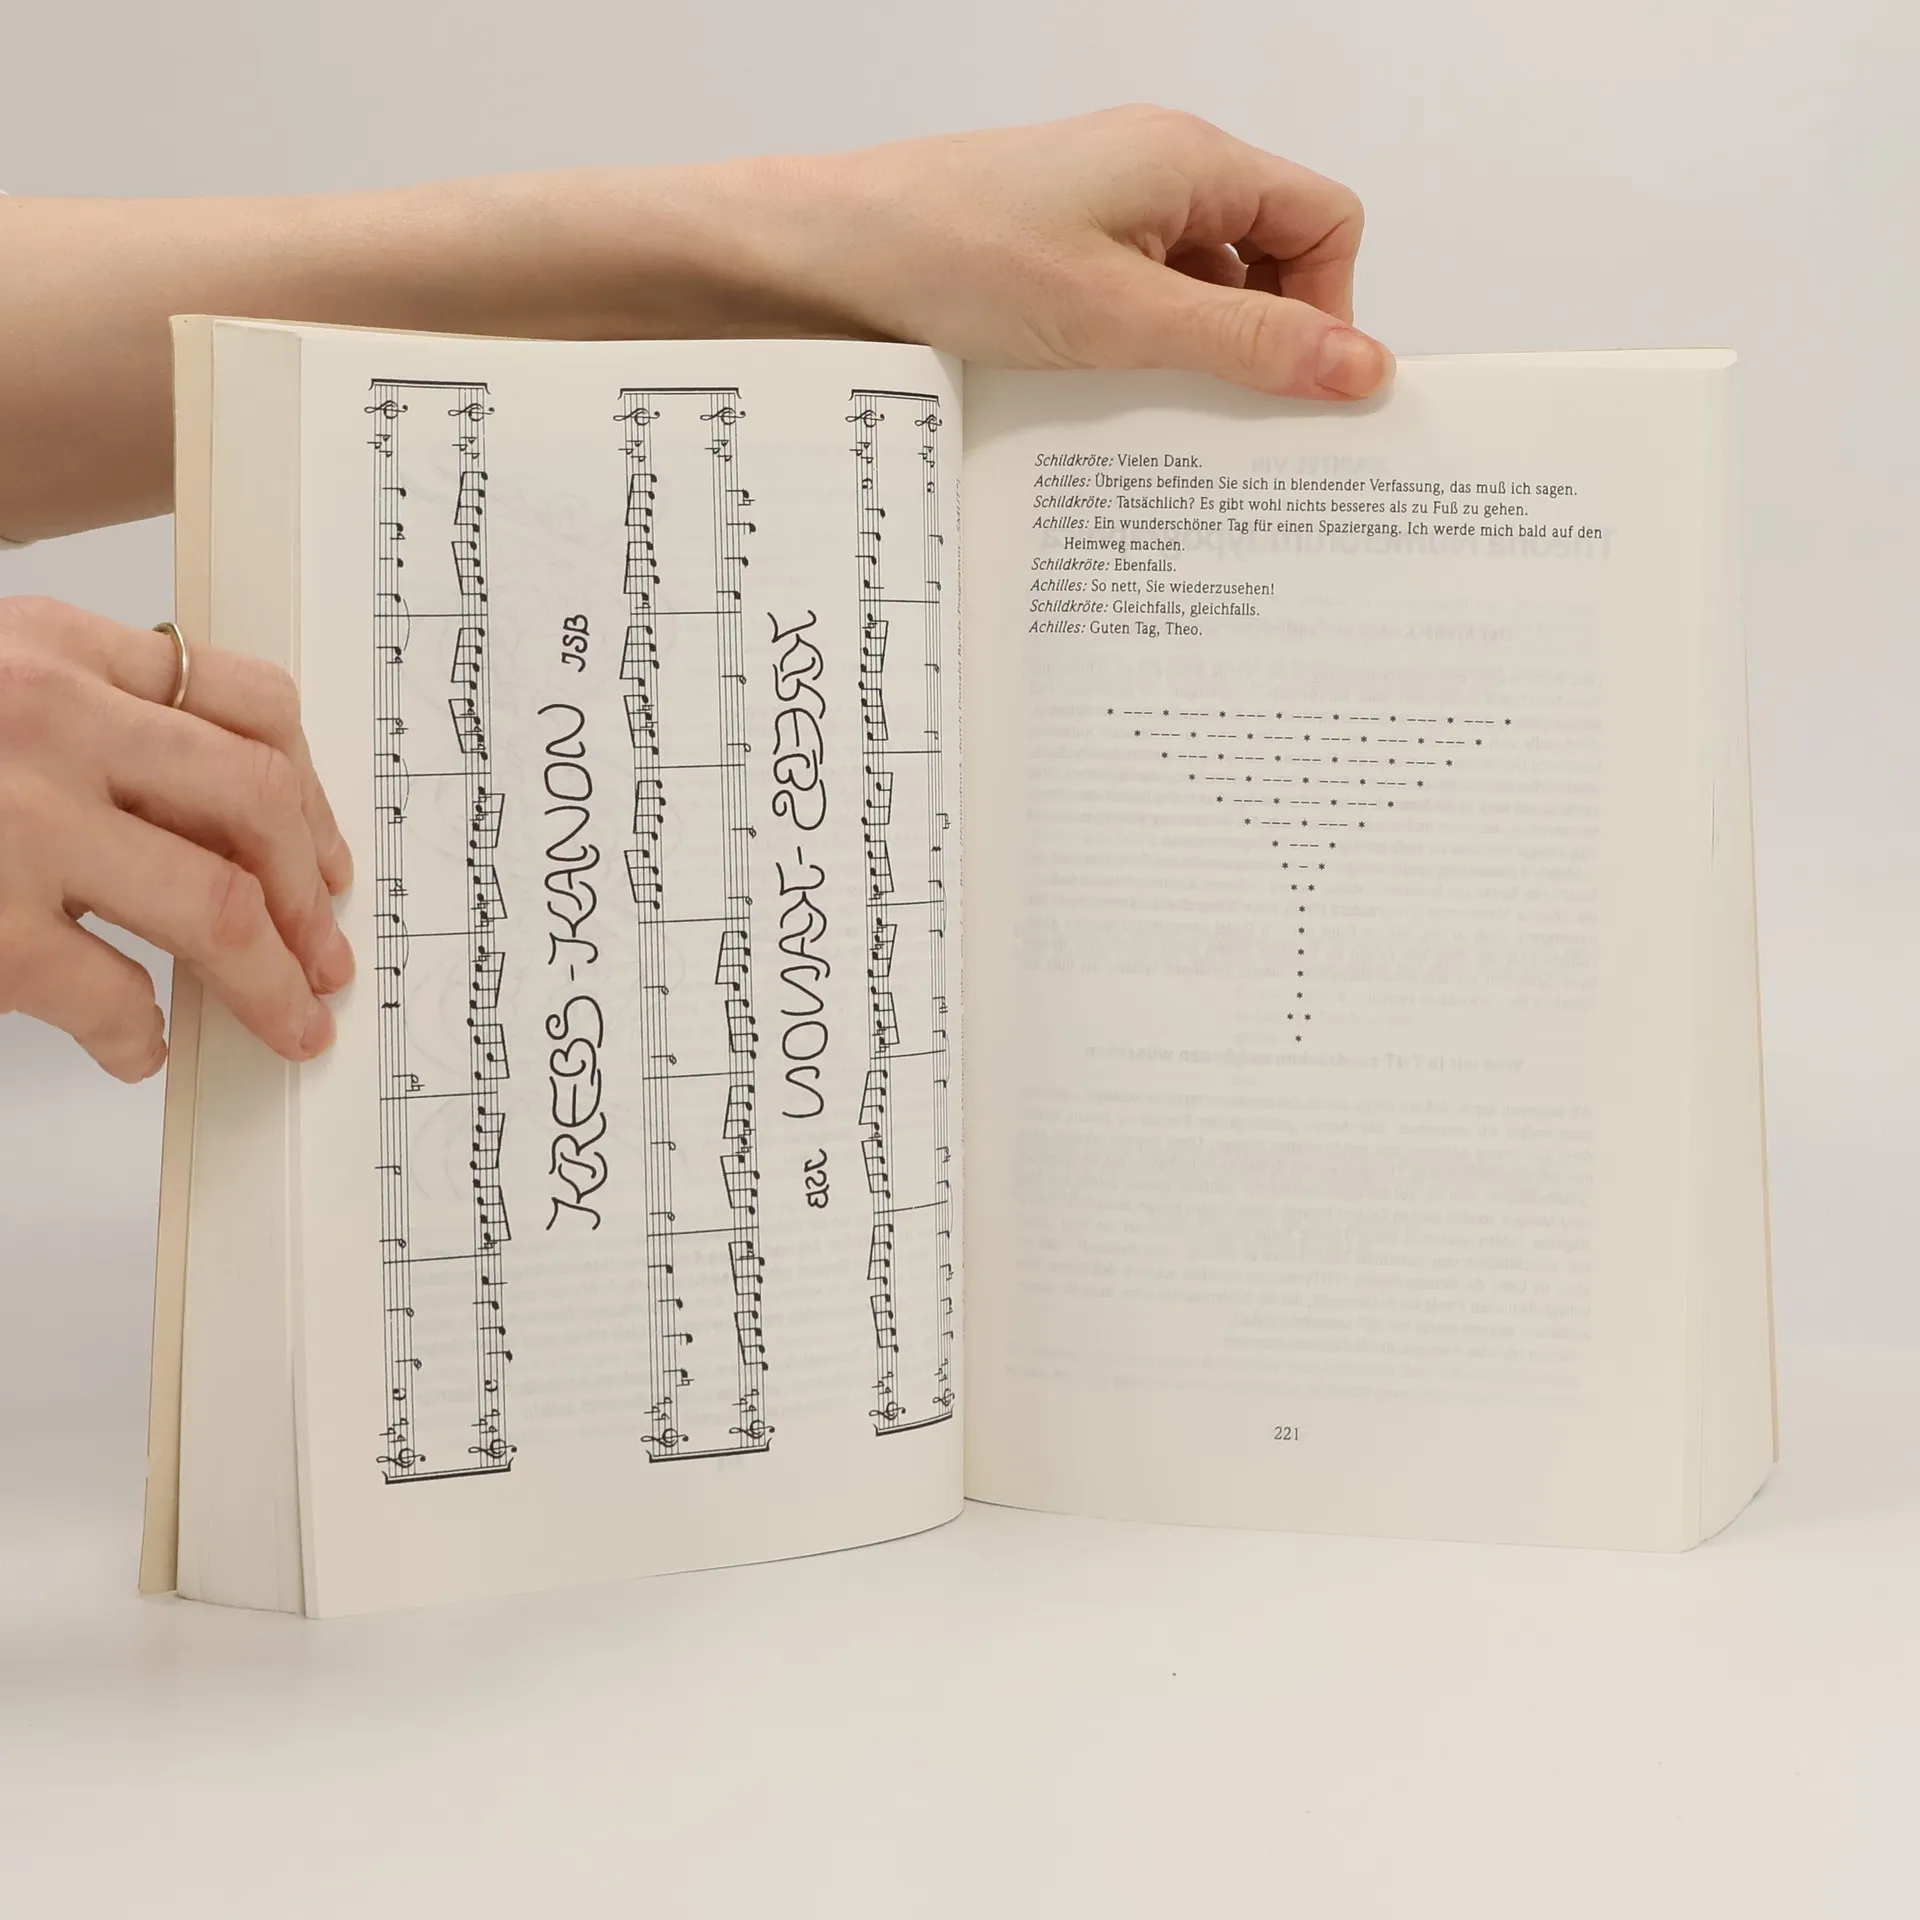 KREBS-KANON JSB
KREBS-KANON JSB
Schildkröte: Vielen Dank.
Achilles: Übrigens befinden Sie sich in blendender Verfassung, das muß ich sagen.
Schildkröte: Tatsächlich? Es gibt wohl nichts besseres als zu Fuß zu gehen.
Achilles: Ein wunderschöner Tag für einen Spaziergang. Ich werde mich bald auf den
Heimweg machen.
Schildkröte: Ebenfalls.
Achilles: So nett, Sie wiederzusehen!
Schildkröte: Gleichfalls, gleichfalls.
Achilles: Guten Tag, Theo.
* --- * --- * --- * --- * --- * --- * --- *
* --- * --- * --- * --- * --- * --- *
* --- * --- * --- * --- * --- *
* --- * --- * --- * --- *
* --- * --- * --- *
* --- * --- *
* --- *
* - *
* *
*
*
*
*
*
* *
*
221